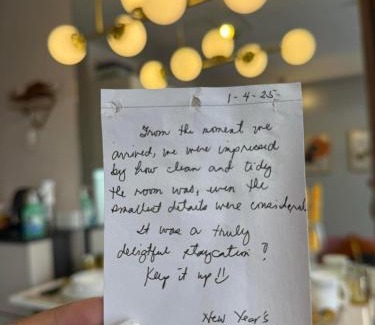 1-4-25
From the moment we
arrived, we were impressed
by how clean and tidy
the room was, even the
smallest details were considered.
It was a truly
delightful staycation!
Keep it up!!
New Year's